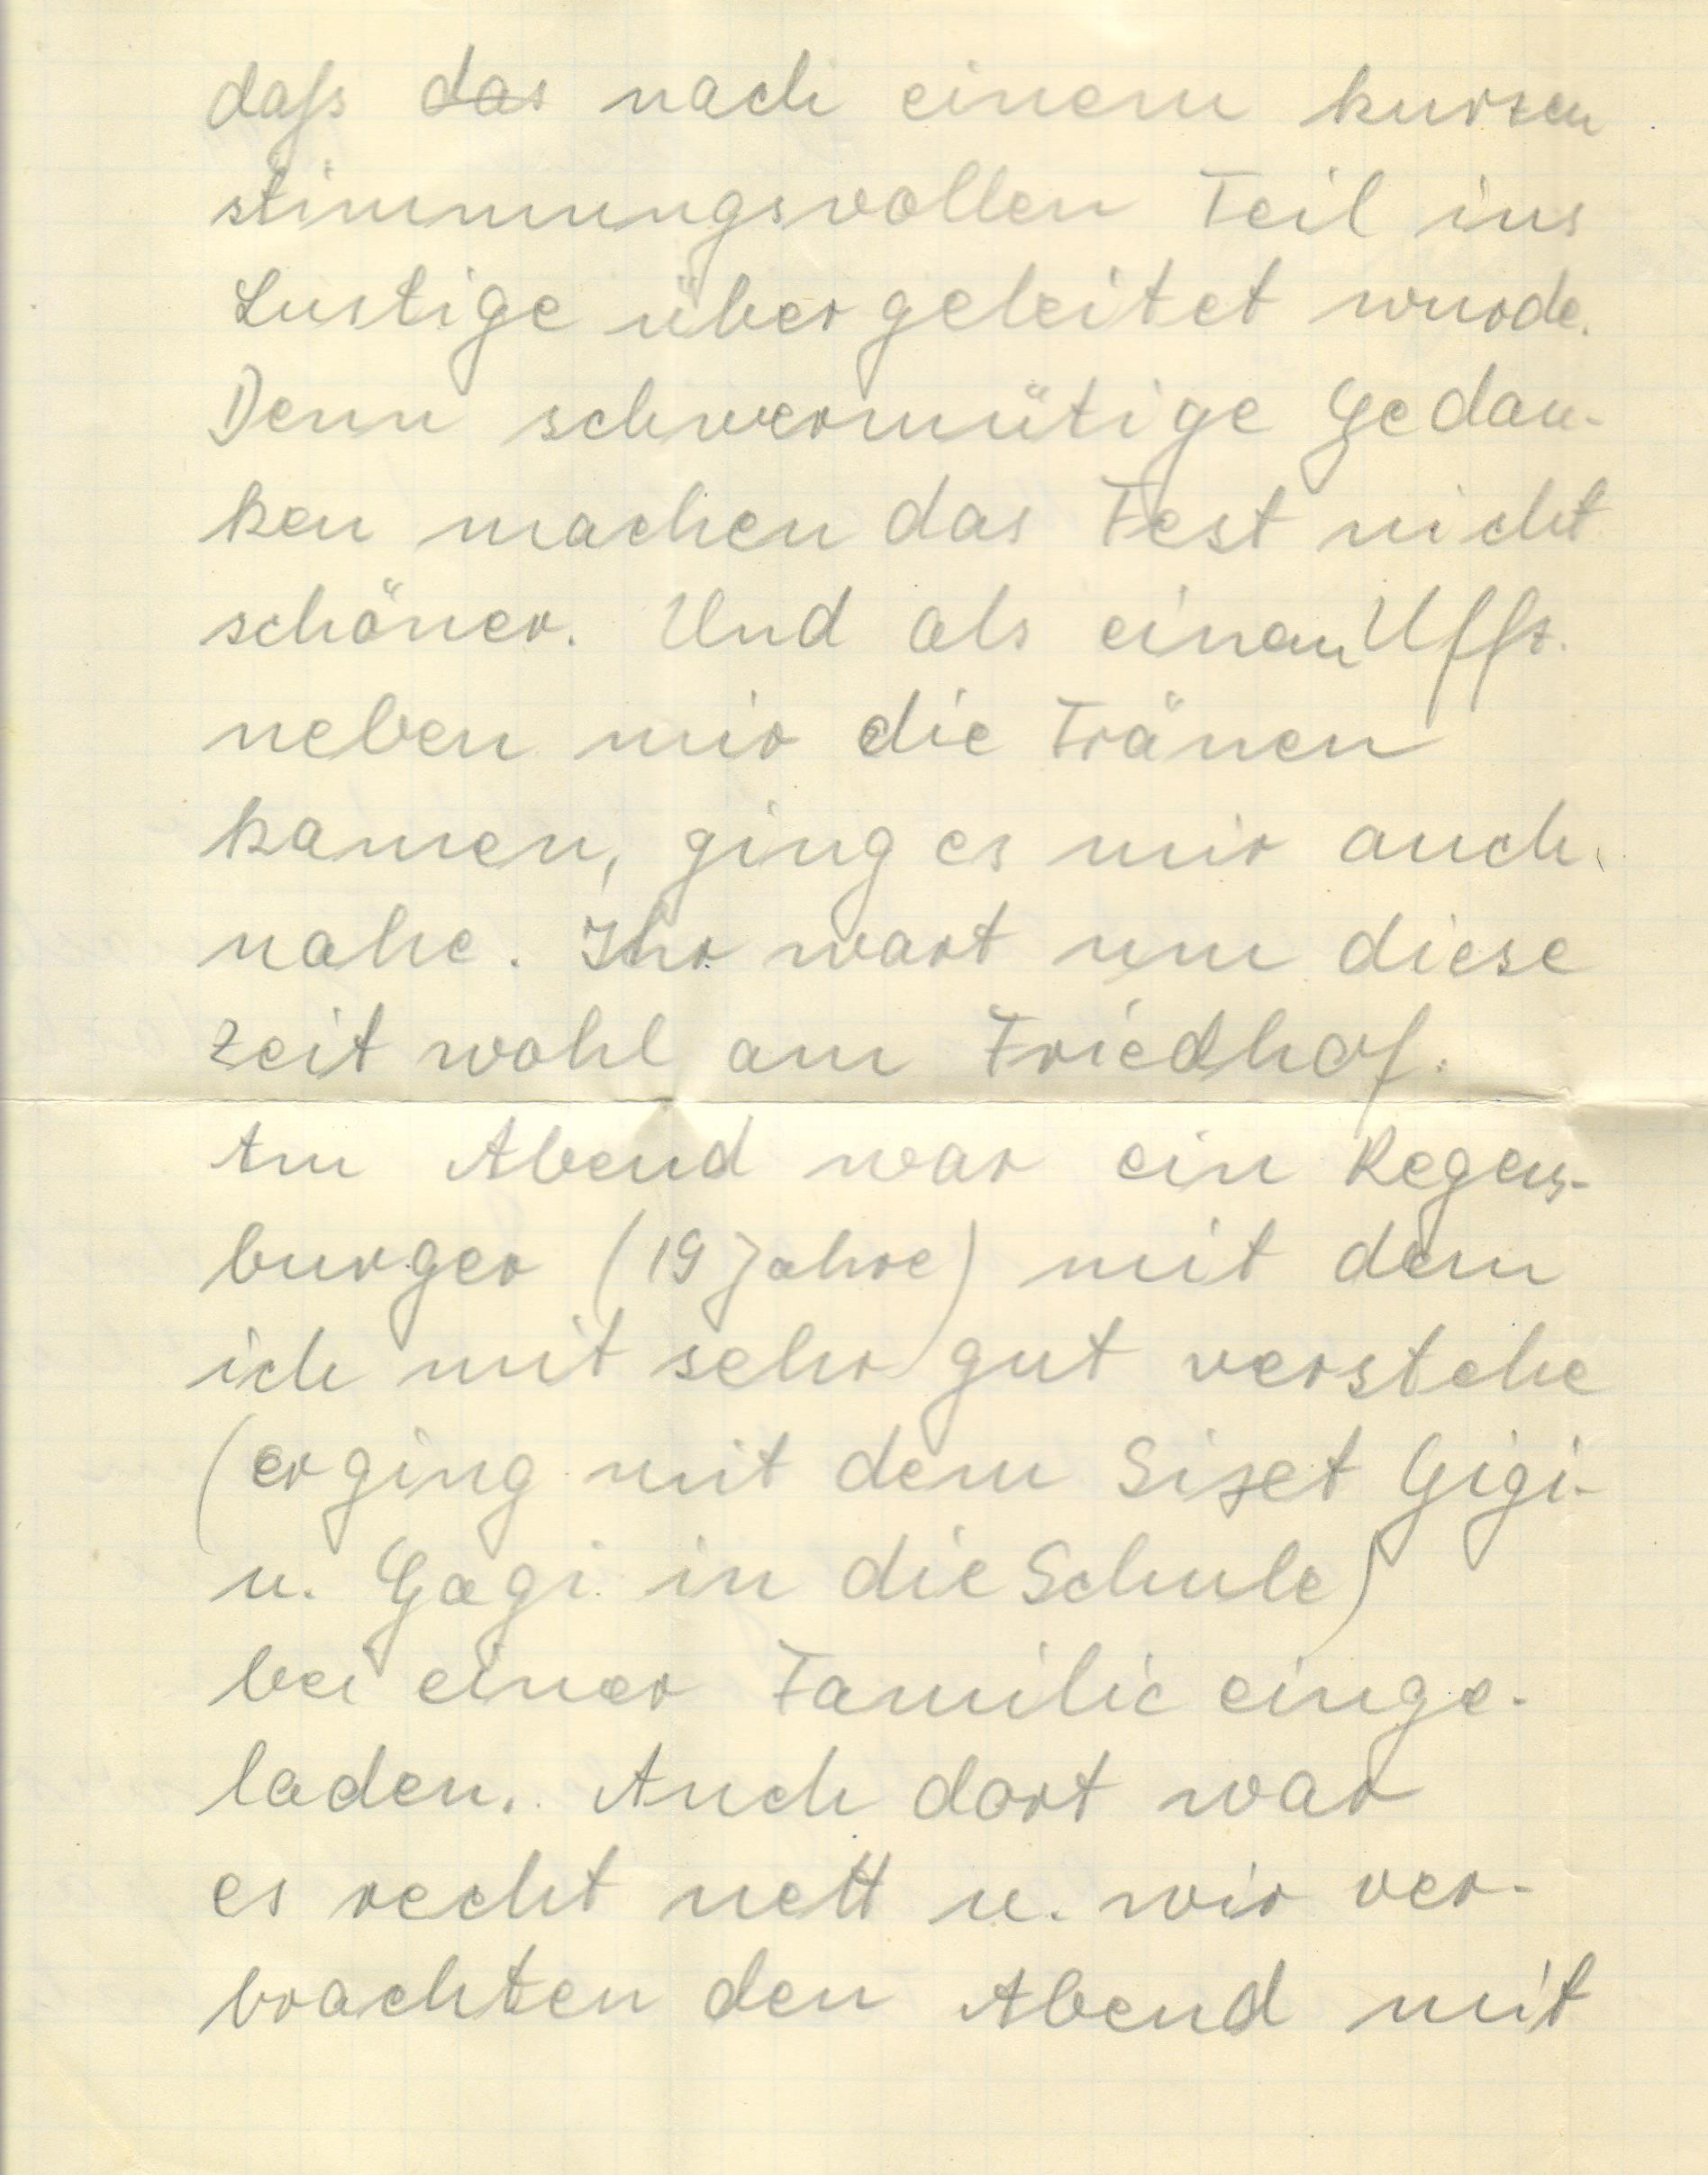 daß das nach einem kurzen
stimmungsvollen Teil ins
Lustige übergeleitet wurde.
Denn schwermütige Gedan-
ken machen das Fest nicht
schöner. Und als einem Uffz.
neben mir die Tränen
kamen, ging es mir auch
nahe. Ihr wart um diese
Zeit wohl am Friedhof.
Am Abend war ein Regens-
burger (19 Jahre) mit dem
ich mit sehr gut verstehe
(er ging mit dem Sizet Gigi-
u. Gagi in die Schule)
bei einer Familie einge-
laden. Auch dort war
es recht nett u. wir ver-
brachten den Abend mit